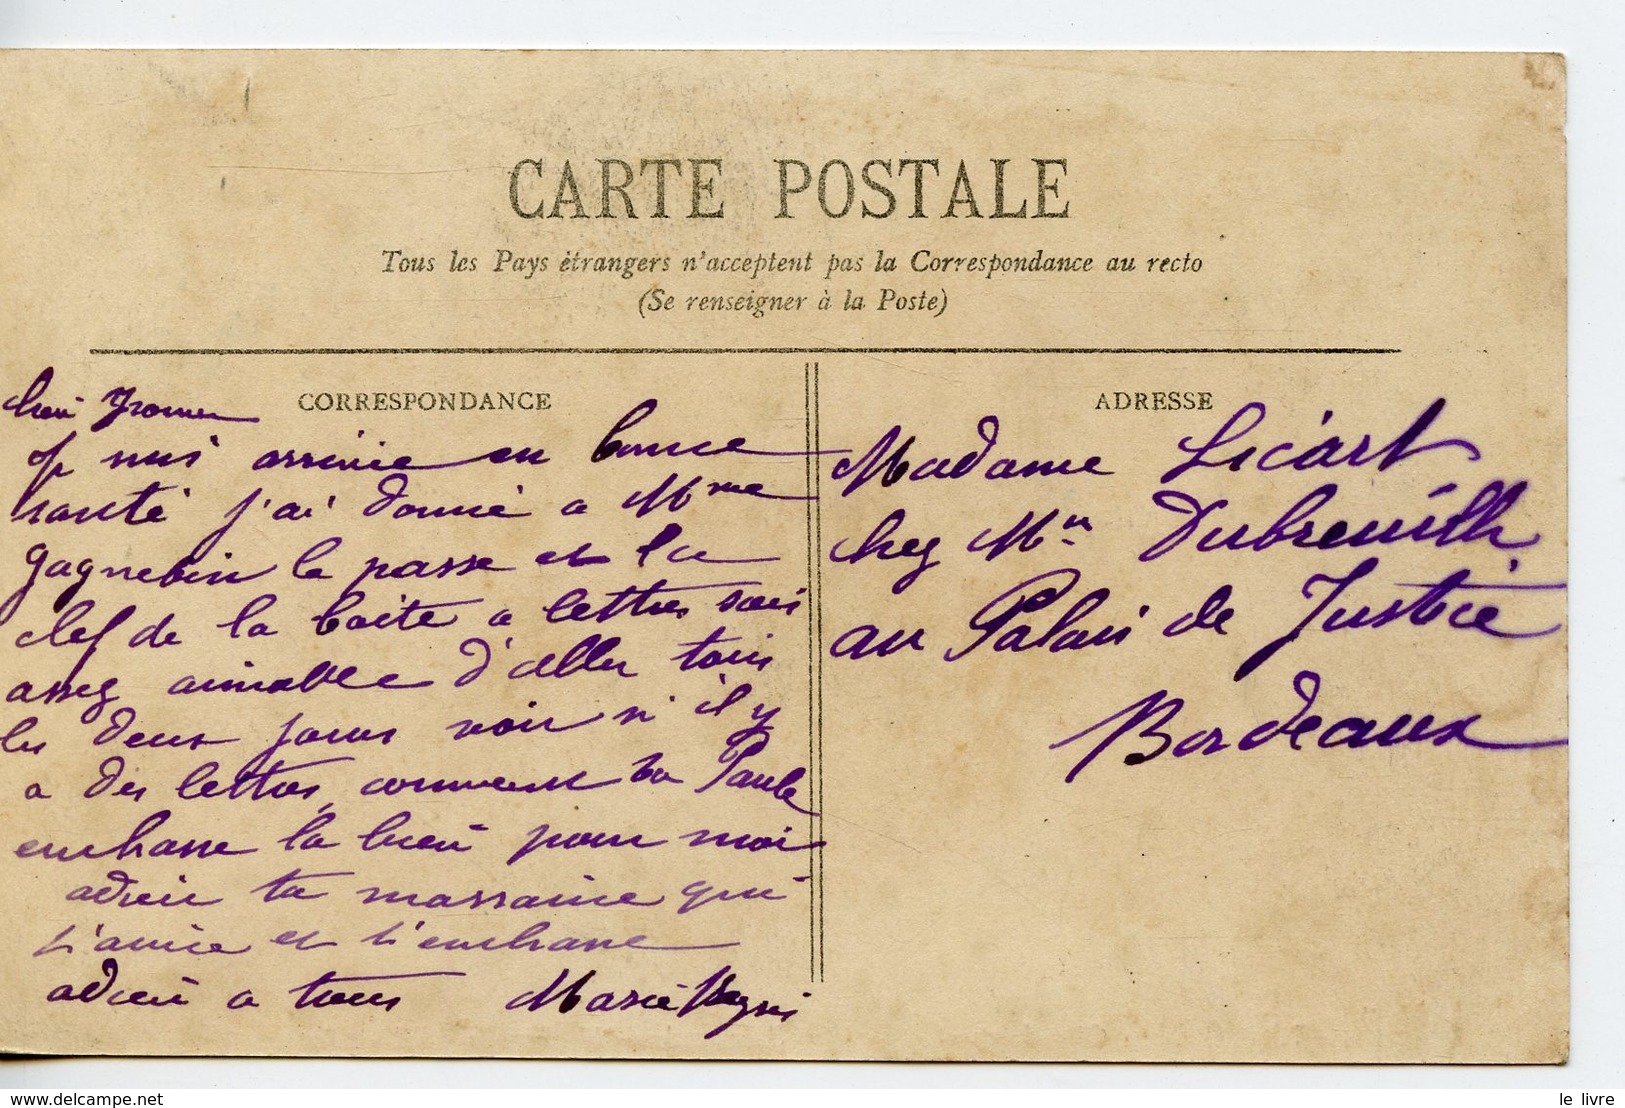 CARTE POSTALE
Tous les Pays étrangers n'acceptent pas la Correspondance au recto
(Se renseigner à la Poste)
CORRESPONDANCE
suis arrivée en bonne
santé j'ai donné a Mme
gagnebin le passe et la
clef de la boite a lettres
assez aimable d'aller tous
les deux jours voir s'il y
a des lettres, comment va Paule
embrasse la bien pour moi
adieu ta marraine qui
t'aime et t'embrasse
adieu a tous Marie
ADRESSE
Madame Licart
chez Mr Dubreuilh
au Palais de Justice
Bordeaux
delcampe.net
le livre